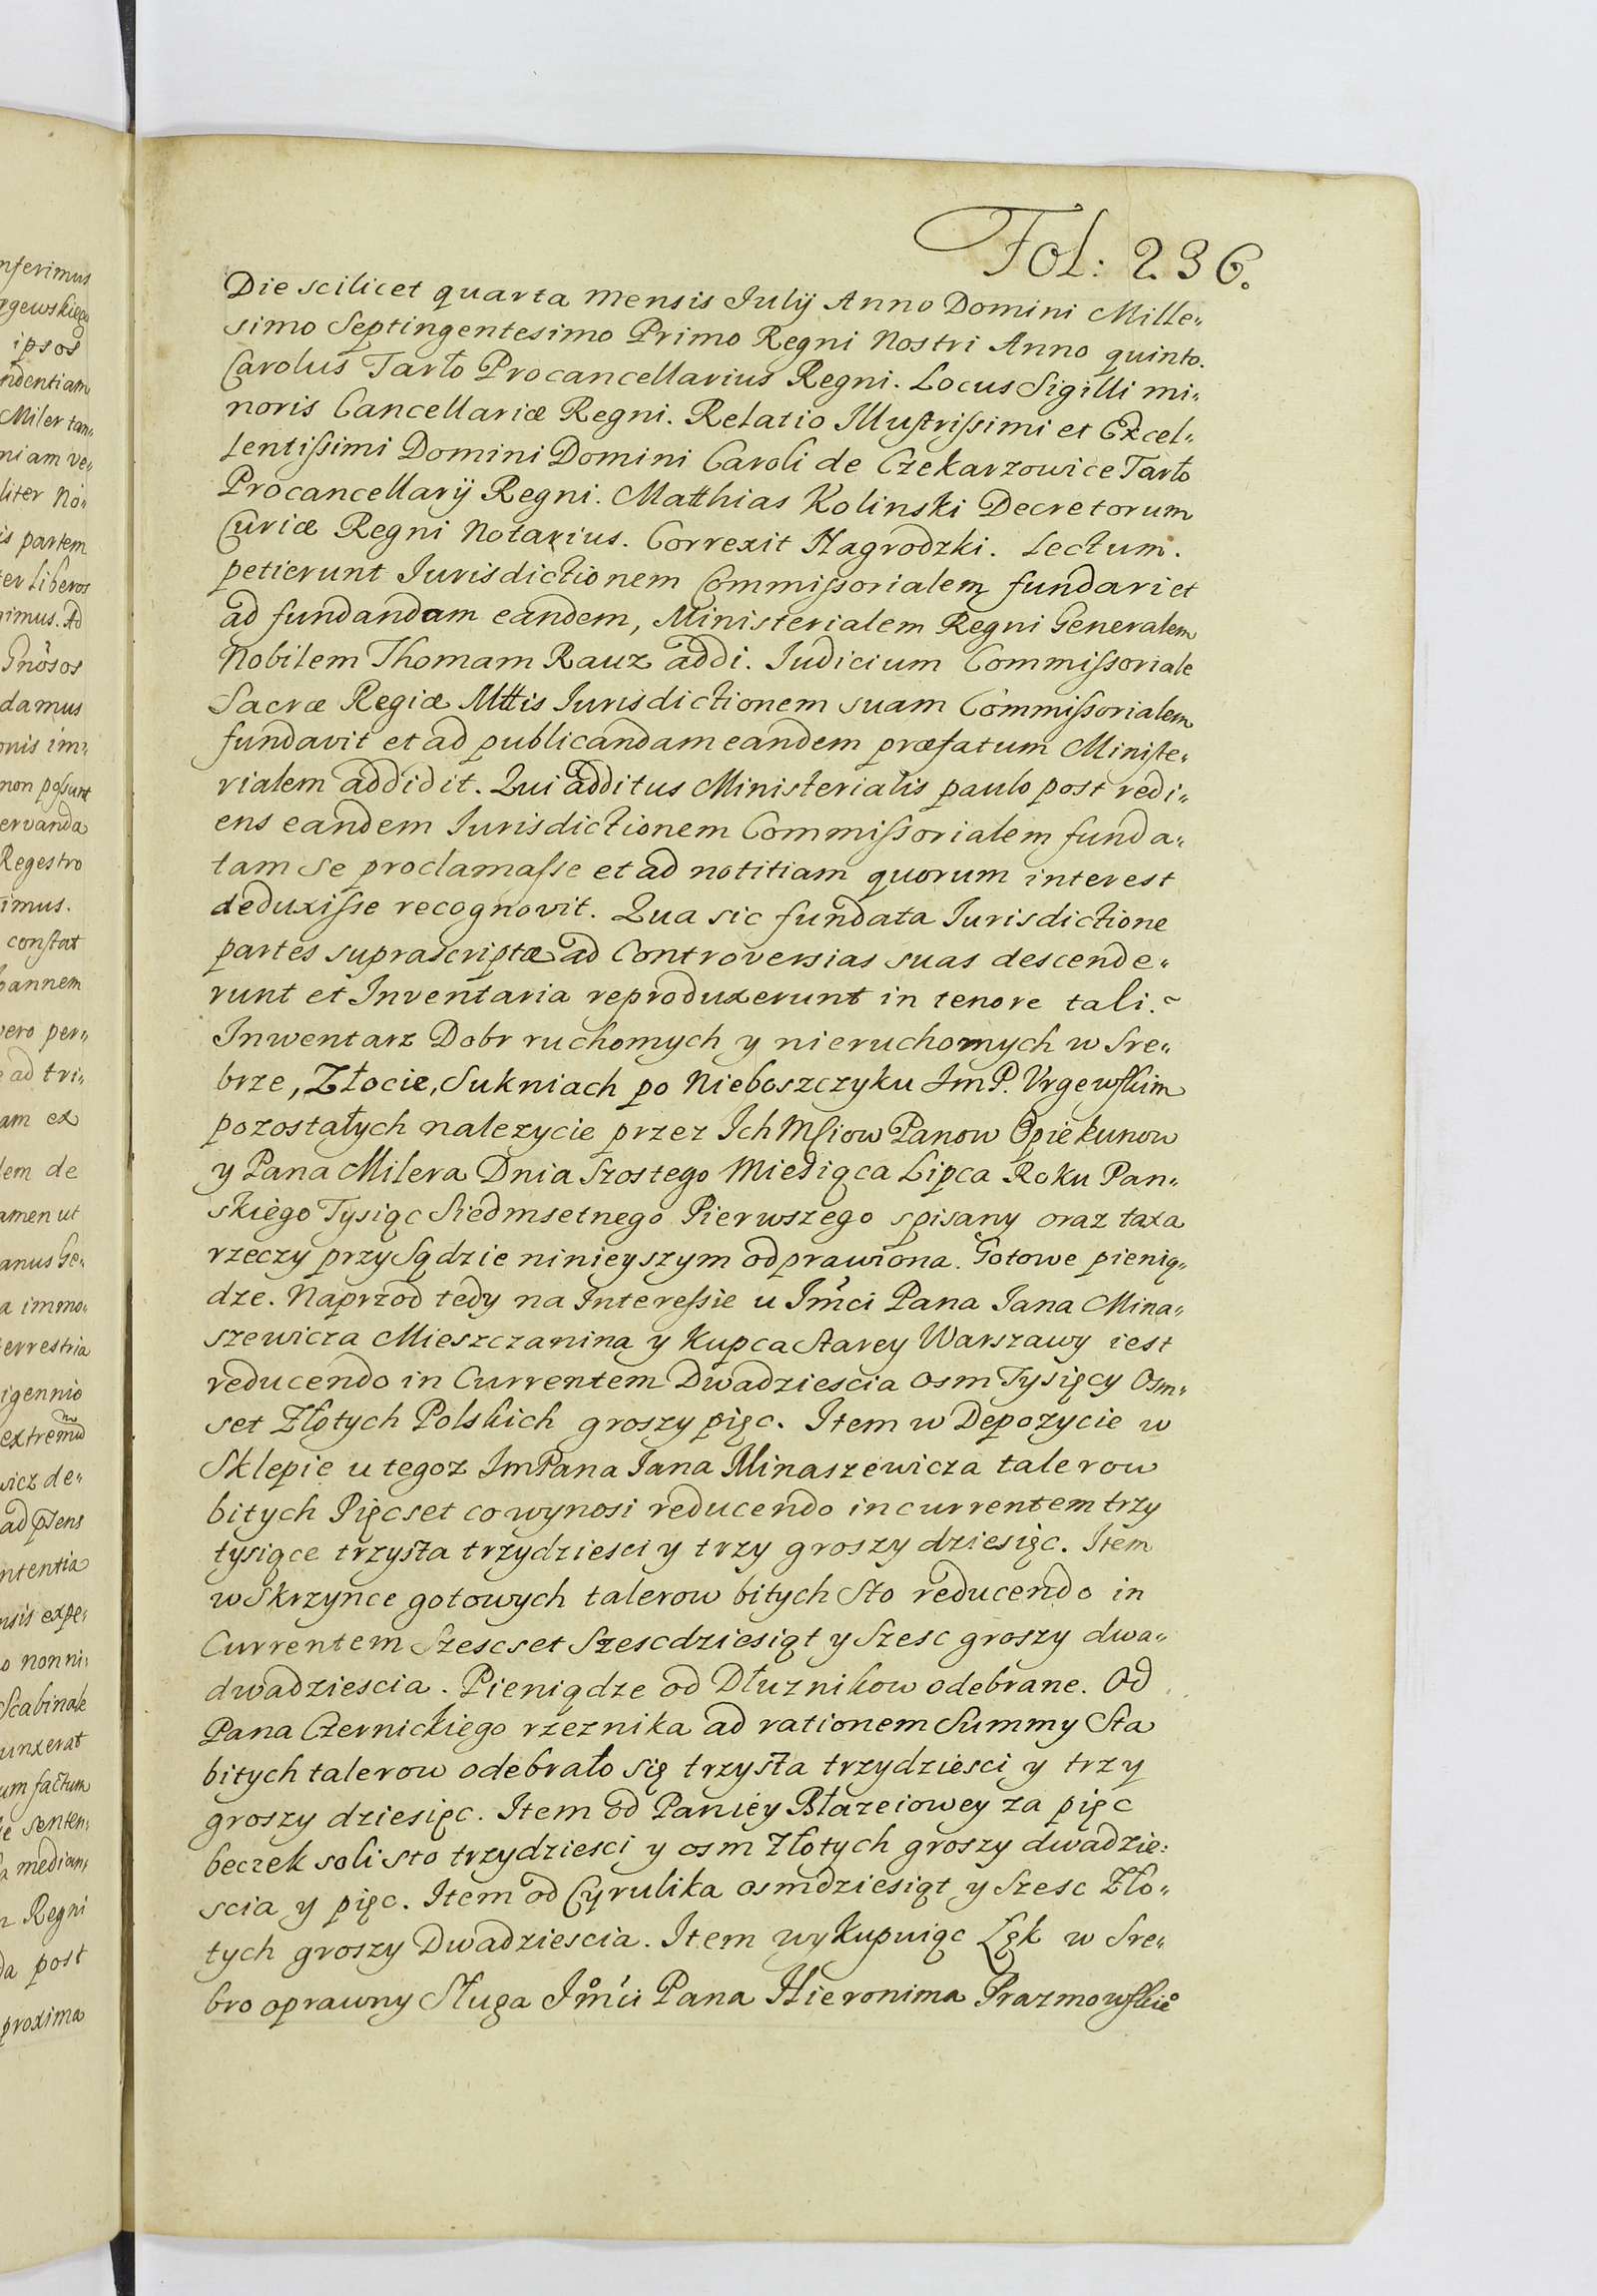 Fol: 236.
Die scilicet quarta mensis Julij Anno Domini Mille„
simo Septingentesimo Primo Regni Nostri Anno quinto.
Carolus Tarło Procancellarius Regni. Locus Sigilli mi„
noris Cancellariæ Regni. Relatio Illustrissimi et Excel„
lentissimi Domini Domini Caroli de Czekarzowice Tarło
Procancellarij Regni. Matthias Kolinski Decretorum
Curiæ Regni Notarius. Correxit Nagrodzki. Lectum.
petierunt Iurisdictionem Commissorialem fundari et
ad fundandam eandem, Ministerialem Regni Generalem
Nobilem Thomam Rauz addi. Iudicium Commissoriale
Sacræ Regiæ Mttis Iurisdictionem suam Commissorialem
fundavit et ad publicandam eandem præfatum Ministe„
rialem addidit. Qui additus Ministerialis paulo post redi„
ens eandem Iurisdictionem Commissorialem funda„
tam se proclamasse et ad notitiam quorum interest
deduxisse recognovit. Qua sic fundata Iurisdictione
partes suprascriptæ ad Controversias suas descende„
runt et Inventaria reproduxerunt in tenore tali.~
Inwentarz Dobr ruchomych y nieruchomych w Sre„
brze, Złocie, Sukniach po Nieboszczyku JmP. Vrgewskim
pozostałych nalezycie przez Ich Mſciow Panow Opiekunow
y Pana Milera Dnia Szostego Miesiąca Lipca Roku Pan„
skiego Tysiąc Siedmsetnego Pierwszego spisany oraz taxa
rzeczy przy Sądzie ninieyszym odprawiona. Gotowe pienią„
dze. Naprzod tedy na Interessie u Jm̃ci Pana Iana Mina„
szewicza Mieszczanina y Kupca Starey Warszawy iest
reducendo in Currentem Dwadziescia Osm Tysięcy Osm„
set Złotych Polskich groszy pięc. Item w Depozycie w
Sklepie u tegoz JmPana Iana Minaszewicza talerow
bitych Pięcset co wynosi reducendo in currentem trzy
tysiące trzysta trzydziesci y trzy groszy dziesięc. Item
w Skrzynce gotowych talerow bitych Sto reducendo in
Currentem Szescset Szescdziesiąt y Szesc groszy dwa„
dwadziescia. Pieniądze od Dłuznikow odebrane. Od
Pana Czernickiego rzeznika ad rationem Summy Sta
bitych talerow odebrało się trzysta trzydziesci y trzy
groszy dziesięc. Item od Paniey Błazeiowey za pięc
beczek soli sto trzydziesci y osm Złotych groszy dwadzie:
scia y pięc. Item od Cyrulika osmdziesiąt y Szesc Zło„
tych groszy Dwadziescia. Item wykupuiąc Lęk w Sre„
bro oprawny Sługa Jm̊ci Pana Hieronima Prazmowskie̊